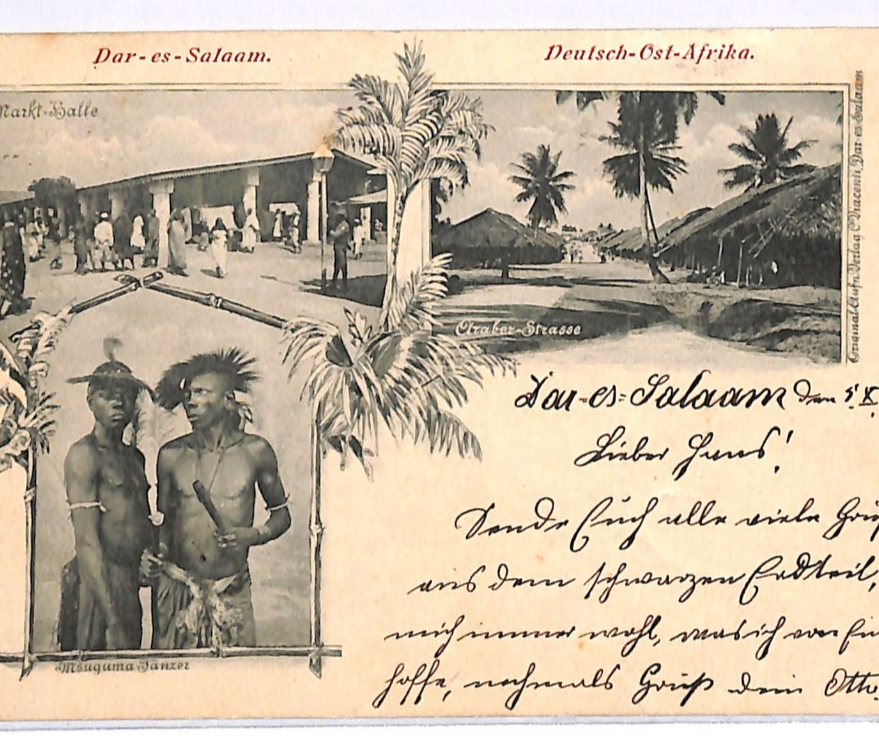 Dar-es-Salaam.
Deutsch-Ost-Afrika.
Markt-Halle
Araber-Strasse
Original-Aufn. Verlag C. Vincenti, Dar es Salaam
Msuguma Tänzer
Dar-es-Salaam den 5. X.
Lieber Hans!
Sende Euch alle viele Grüß
aus dem schwarzen Erdteil,
mich immer wohl, was ich von Eu
hoffe, nochmals Gruß dein Otto.